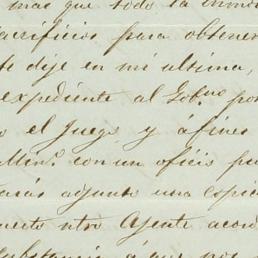 mas que todo la
sacrificios para obtener
te dije en mi ultima,
expediente al Gobno. por
el Juego y áfines
con un oficio
adjunto una copia
ntro Agente
á que nos